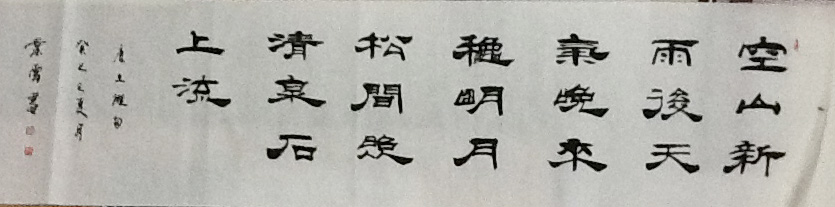 空山新
雨後天
氣晚來
穐明月
松間照
清泉石
上流
唐王維句
癸巳之夏月
書